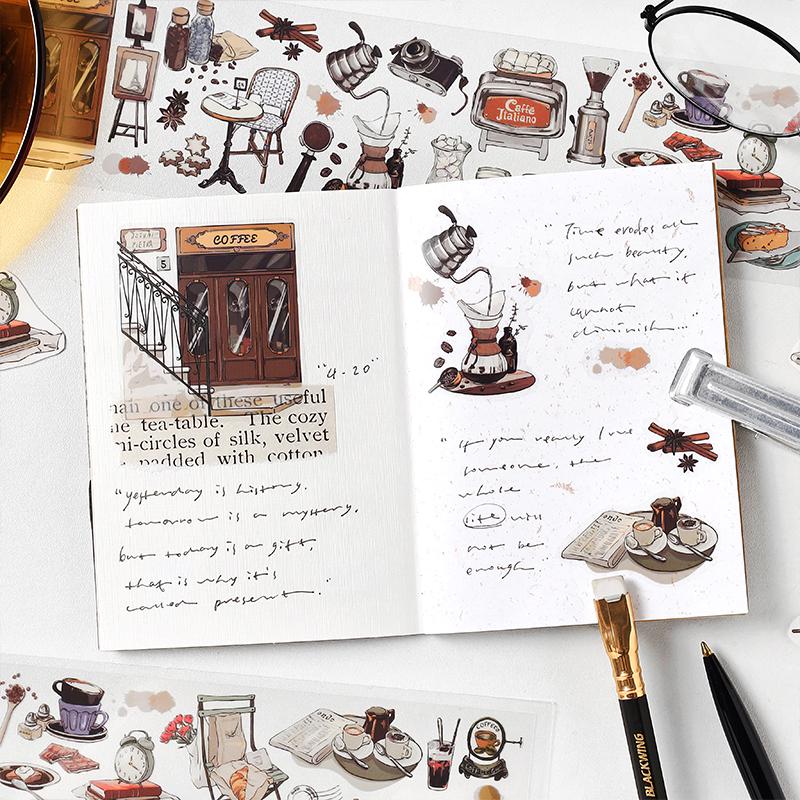 COFFEE
5
"4-20"
man one of these useful
he tea-table. The cozy
mi-circles of silk, velvet
padded with cotton
"yesterday is history,
tomorrow is a mystery,
but today is a gift,
that is why it's
called present."
"Time erodes all
such beauty,
but what it
cannot
diminish..."
"If you really love
someone, the
whole
life will
not be
enough
Caffè
Italiano
BLACKWING
COFFEE